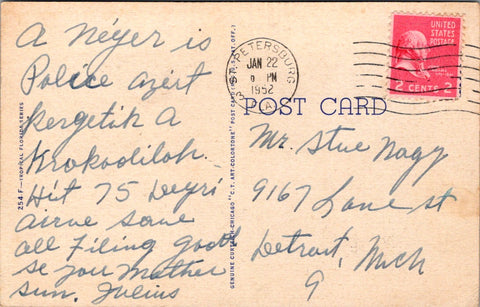 A Néger is
Police azért
kergetik A
Krokodilok.
Hit 75 Degri
airne same
all filing good
se you Mather
sun. Julius
254 F—TROPICAL FLORIDA SERIES
GENUINE CURTEICH-CHICAGO "C.T. ART-COLORTONE" POST CARD (REG. U.S. PAT. OFF.)
ST. PETERSBURG
JAN 22
PM
1952
UNITED
STATES
POSTAGE
2 CENTS 2
POST CARD
Mr. Stue Nagy
9167 Lane st
Detroit, Mich
9